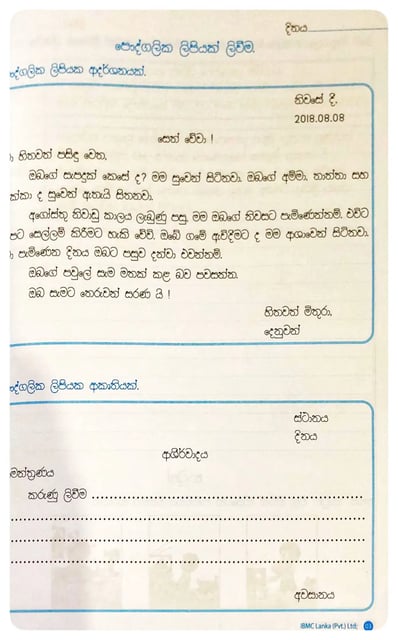 දිනය
පෞද්ගලික ලිපියක් ලිවීම.
ද්ගලික ලිපියක ආදර්ශනයක්.
නිවසේ දී,
2018.08.08
සෙත් වේවා !
හිතවත් පසිඳු වෙත,
ඔබගේ සැපදුක් කෙසේ ද? මම සුවෙන් සිටිනවා. ඔබගේ අම්මා, තාත්තා සහ
ක්කා ද සුවෙන් ඇතැයි සිතනවා.
අගෝස්තු නිවාඩු කාලය ලැබුණු පසු, මම ඔබගේ නිවසට පැමිණෙන්නම්. එවිට
පට සෙල්ලම් කිරීමට හැකි වේවි. ඔබේ ගමේ ඇවිදීමට ද මම ආශාවෙන් සිටිනවා.
පැමිණෙන දිනය ඔබට පසුව දන්වා එවන්නම්.
ඔබගේ පවුලේ සැම මතක් කළ බව පවසන්න.
ඔබ සැමට තෙරුවන් සරණ යි !
හිතවත් මිතුරා,
දෙනුවන්
ද්ගලික ලිපියක ආකෘතියක්.
ස්ථානය
දිනය
ආශිර්වාදය
මන්ත්‍රණය
කරුණු ලිවීම
අවසානය
IBMC Lanka (Pvt.) Ltd;